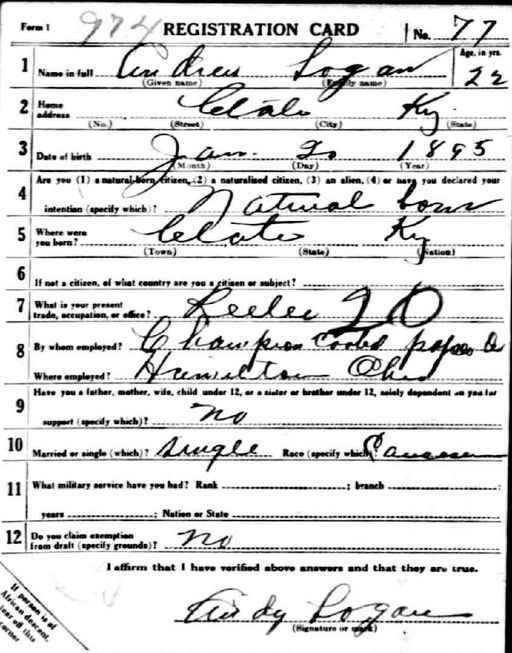 Form 1 974 REGISTRATION CARD No. 77
1 Name in full Andrew Logan Age, in yrs. 22
(Given name) (Family name)
2 Home address Clate Ky.
(No.) (Street) (City) (State)
3 Date of birth Jan. 20 1895
(Month) (Day) (Year)
4 Are you (1) a natural-born citizen, (2) a naturalized citizen, (3) an alien, (4) or have you declared your
intention (specify which)? Natural born
5 Where were you born? Clate Ky
(Town) (State) (Nation)
6 If not a citizen, of what country are you a citizen or subject?
7 What is your present trade, occupation, or office? 20
8 By whom employed? Champion Coated paper Co
Where employed? Hamilton Ohio
9 Have you a father, mother, wife, child under 12, or a sister or brother under 12, solely dependent on you for
support (specify which)? no
10 Married or single (which)? single Race (specify which)?
11 What military service have you had? Rank ; branch ;
years ; Nation or State
12 Do you claim exemption from draft (specify grounds)? no
I affirm that I have verified above answers and that they are true.
Andy Logan
(Signature or mark)
If person is of
African descent,
tear off this
corner